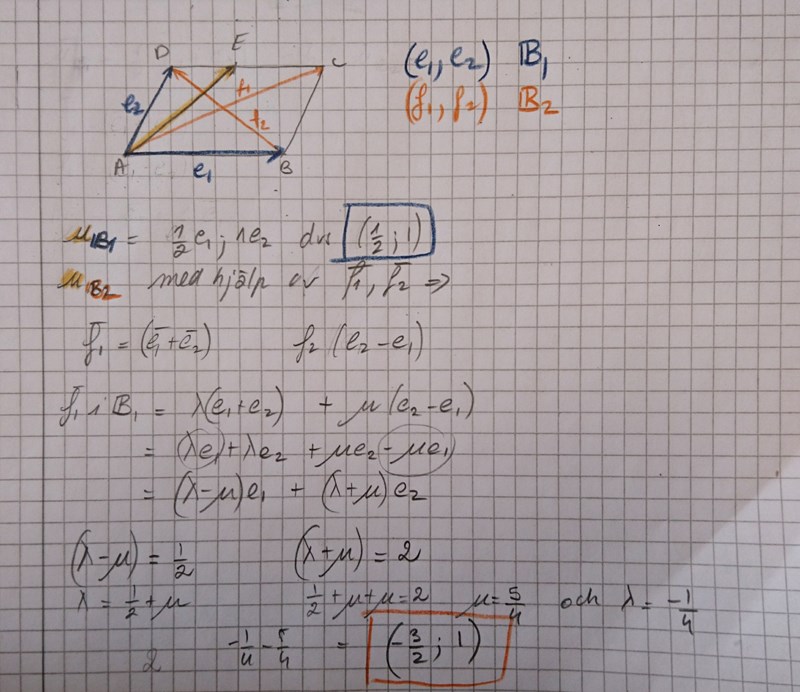 D E C
(e₁, e₂) B₁
(f₁, f₂) B₂
e₂ f₁ f₂
A e₁ B
u_B₁ = ½e₁; 1e₂ dvs (½; 1)
u_B₂ med hjälp av f̄₁, f̄₂ ⇒
f̄₁ = (ē₁+ē₂) f₂ (e₂-e₁)
f̄₁ i B₁ = λ(e₁+e₂) + μ(e₂-e₁)
= λe₁+λe₂ + μe₂-μe₁
= (λ-μ)e₁ + (λ+μ)e₂
(λ-μ) = ½ (λ+μ) = 2
λ = ½+μ ½+μ+μ=2 μ=5/4 och λ = -1/4
2 -1/4-5/4 = (-3/2; 1)